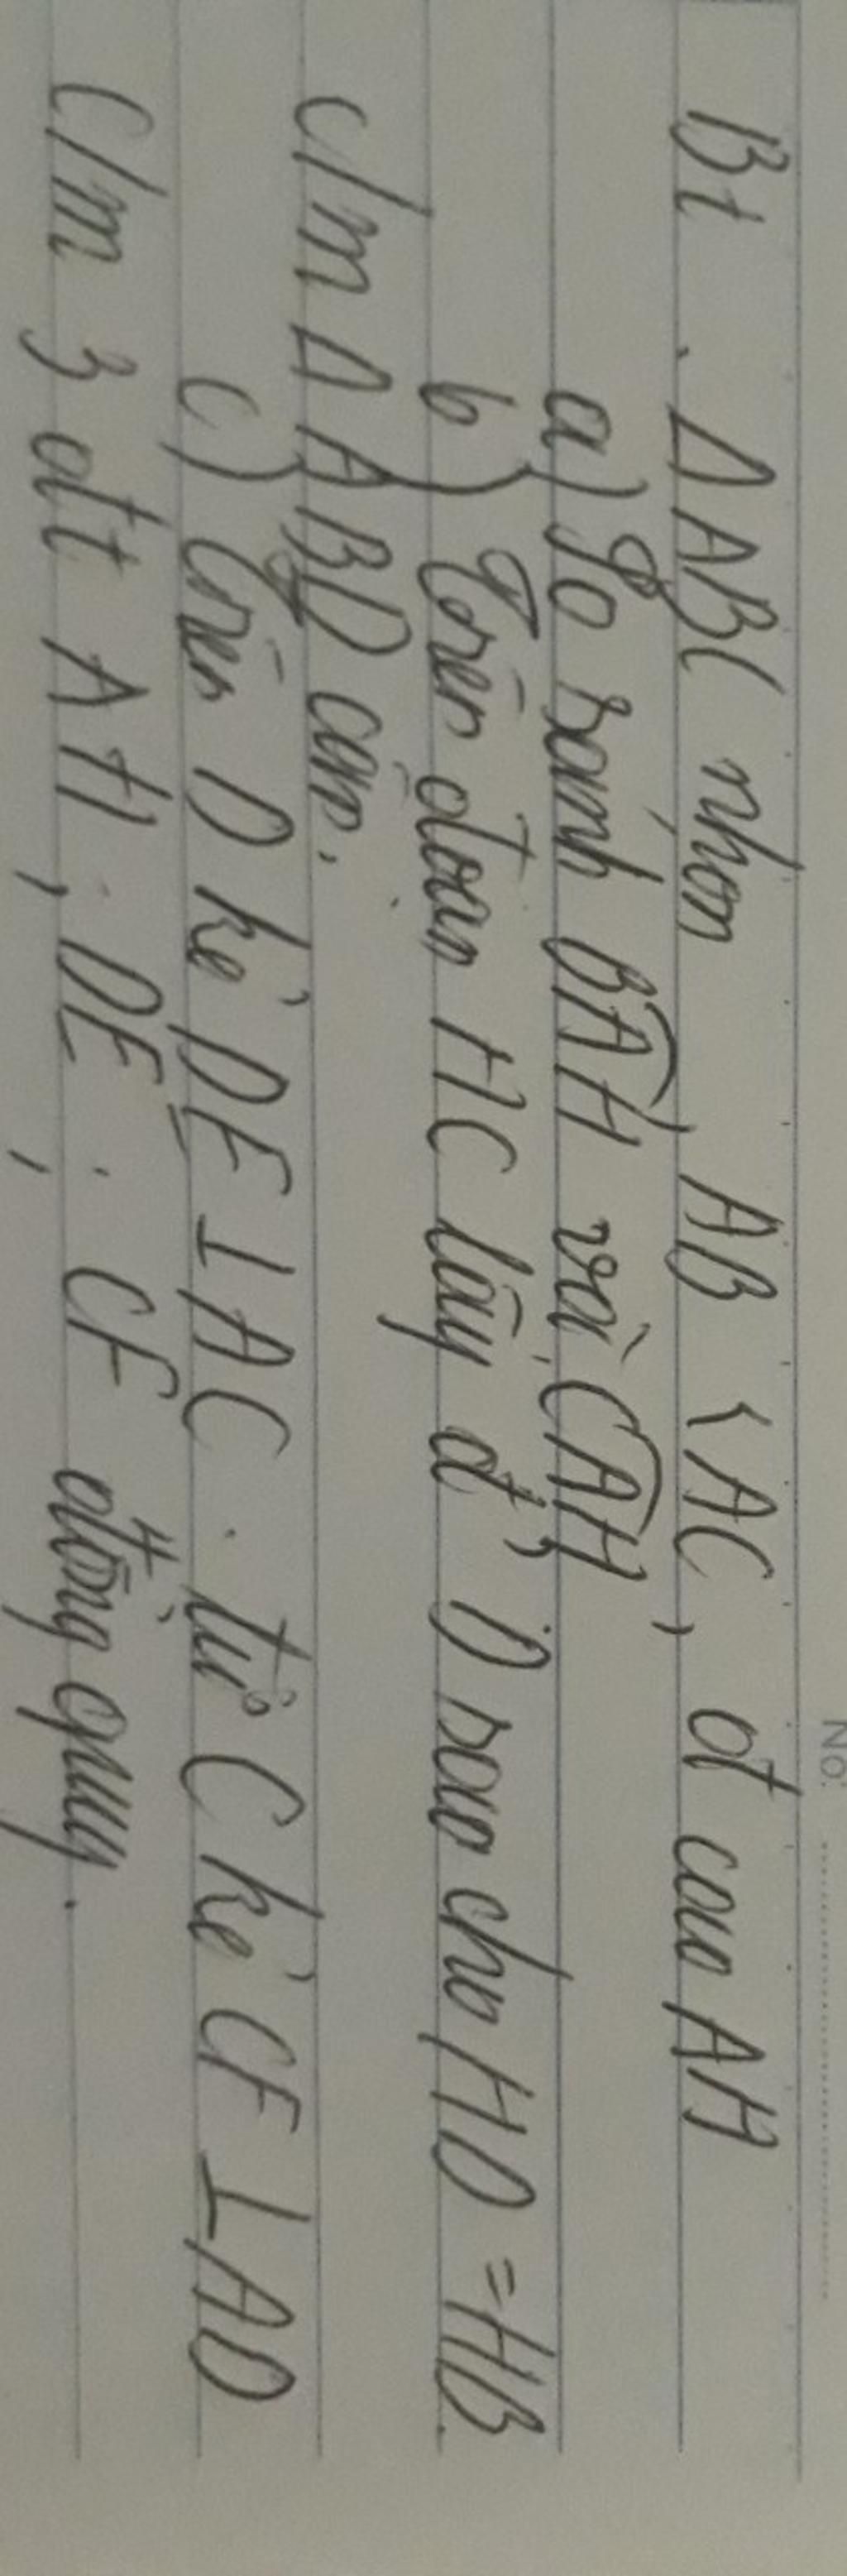 No:
Bt. Δ ABC nhọn, AB < AC, đ cao AH
a) So sánh BAH và CAH
b) Trên đoạn HC lấy đ' D sao cho HD = HB.
c/m Δ ABD cân.
c) Trên D kẻ DE ⊥ AC. từ C kẻ CF ⊥ AD
C/m 3 đt AH, DE, CF đồng quy.